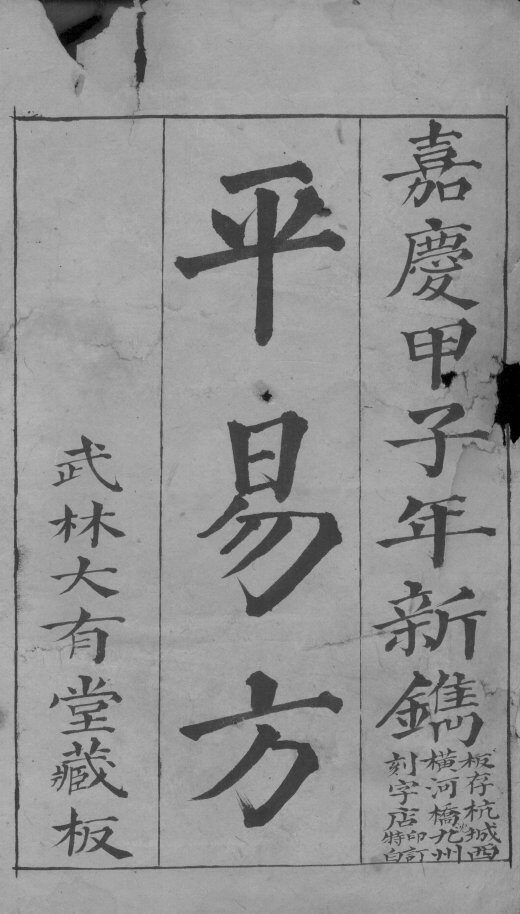 嘉慶甲子年新鐫
板存杭城西
橫河橋北州
刻字店印訂
特白
平易方
武林大有堂藏板